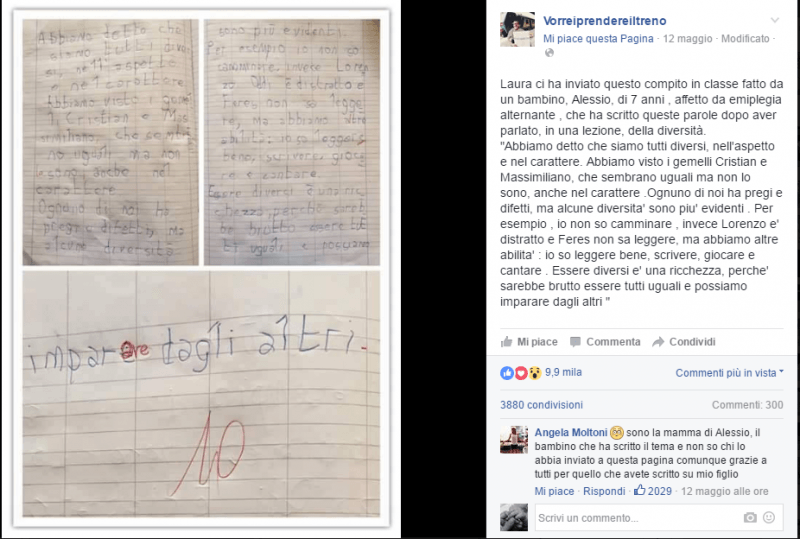 Abbiamo detto che
siamo tutti diver
si, nell'aspetto
e nel carattere.
Abbiamo visto i geme
lli Cristian e Mas
similiano, che sembra
no uguali ma non
lo sono anche nel
carattere
Ognuno di noi ha
pregi e difetti, ma
alcune diversità
sono più evidenti.
Per esempio io non so
camminare, invece Loren
zo è distratto e
Feres non sa legge
re, ma abbiamo altre
abilità: io so leggere
bene, scrivere, gioca
re e cantare.
Essere diversi è una ric
chezza, perché sareb
be brutto essere tut
ti uguali e possiamo
imparare dagli altri.
10
Vorreiprendereiltreno
Mi piace questa Pagina · 12 maggio · Modificato ·
Laura ci ha inviato questo compito in classe fatto da
un bambino, Alessio, di 7 anni , affetto da emiplegia
alternante , che ha scritto queste parole dopo aver
parlato, in una lezione, della diversità.
"Abbiamo detto che siamo tutti diversi, nell'aspetto
e nel carattere. Abbiamo visto i gemelli Cristian e
Massimiliano, che sembrano uguali ma non lo
sono, anche nel carattere .Ognuno di noi ha pregi e
difetti, ma alcune diversita' sono piu' evidenti . Per
esempio , io non so camminare , invece Lorenzo e'
distratto e Feres non sa leggere, ma abbiamo altre
abilita' : io so leggere bene, scrivere, giocare e
cantare . Essere diversi e' una ricchezza, perche'
sarebbe brutto essere tutti uguali e possiamo
imparare dagli altri "
Mi piace Commenta Condividi
9,9 mila Commenti più in vista
3880 condivisioni Commenti: 300
Angela Moltoni sono la mamma di Alessio, il
bambino che ha scritto il tema e non so chi lo
abbia inviato a questa pagina comunque grazie a
tutti per quello che avete scritto su mio figlio
Mi piace · Rispondi · 2029 · 12 maggio alle ore
Scrivi un commento...